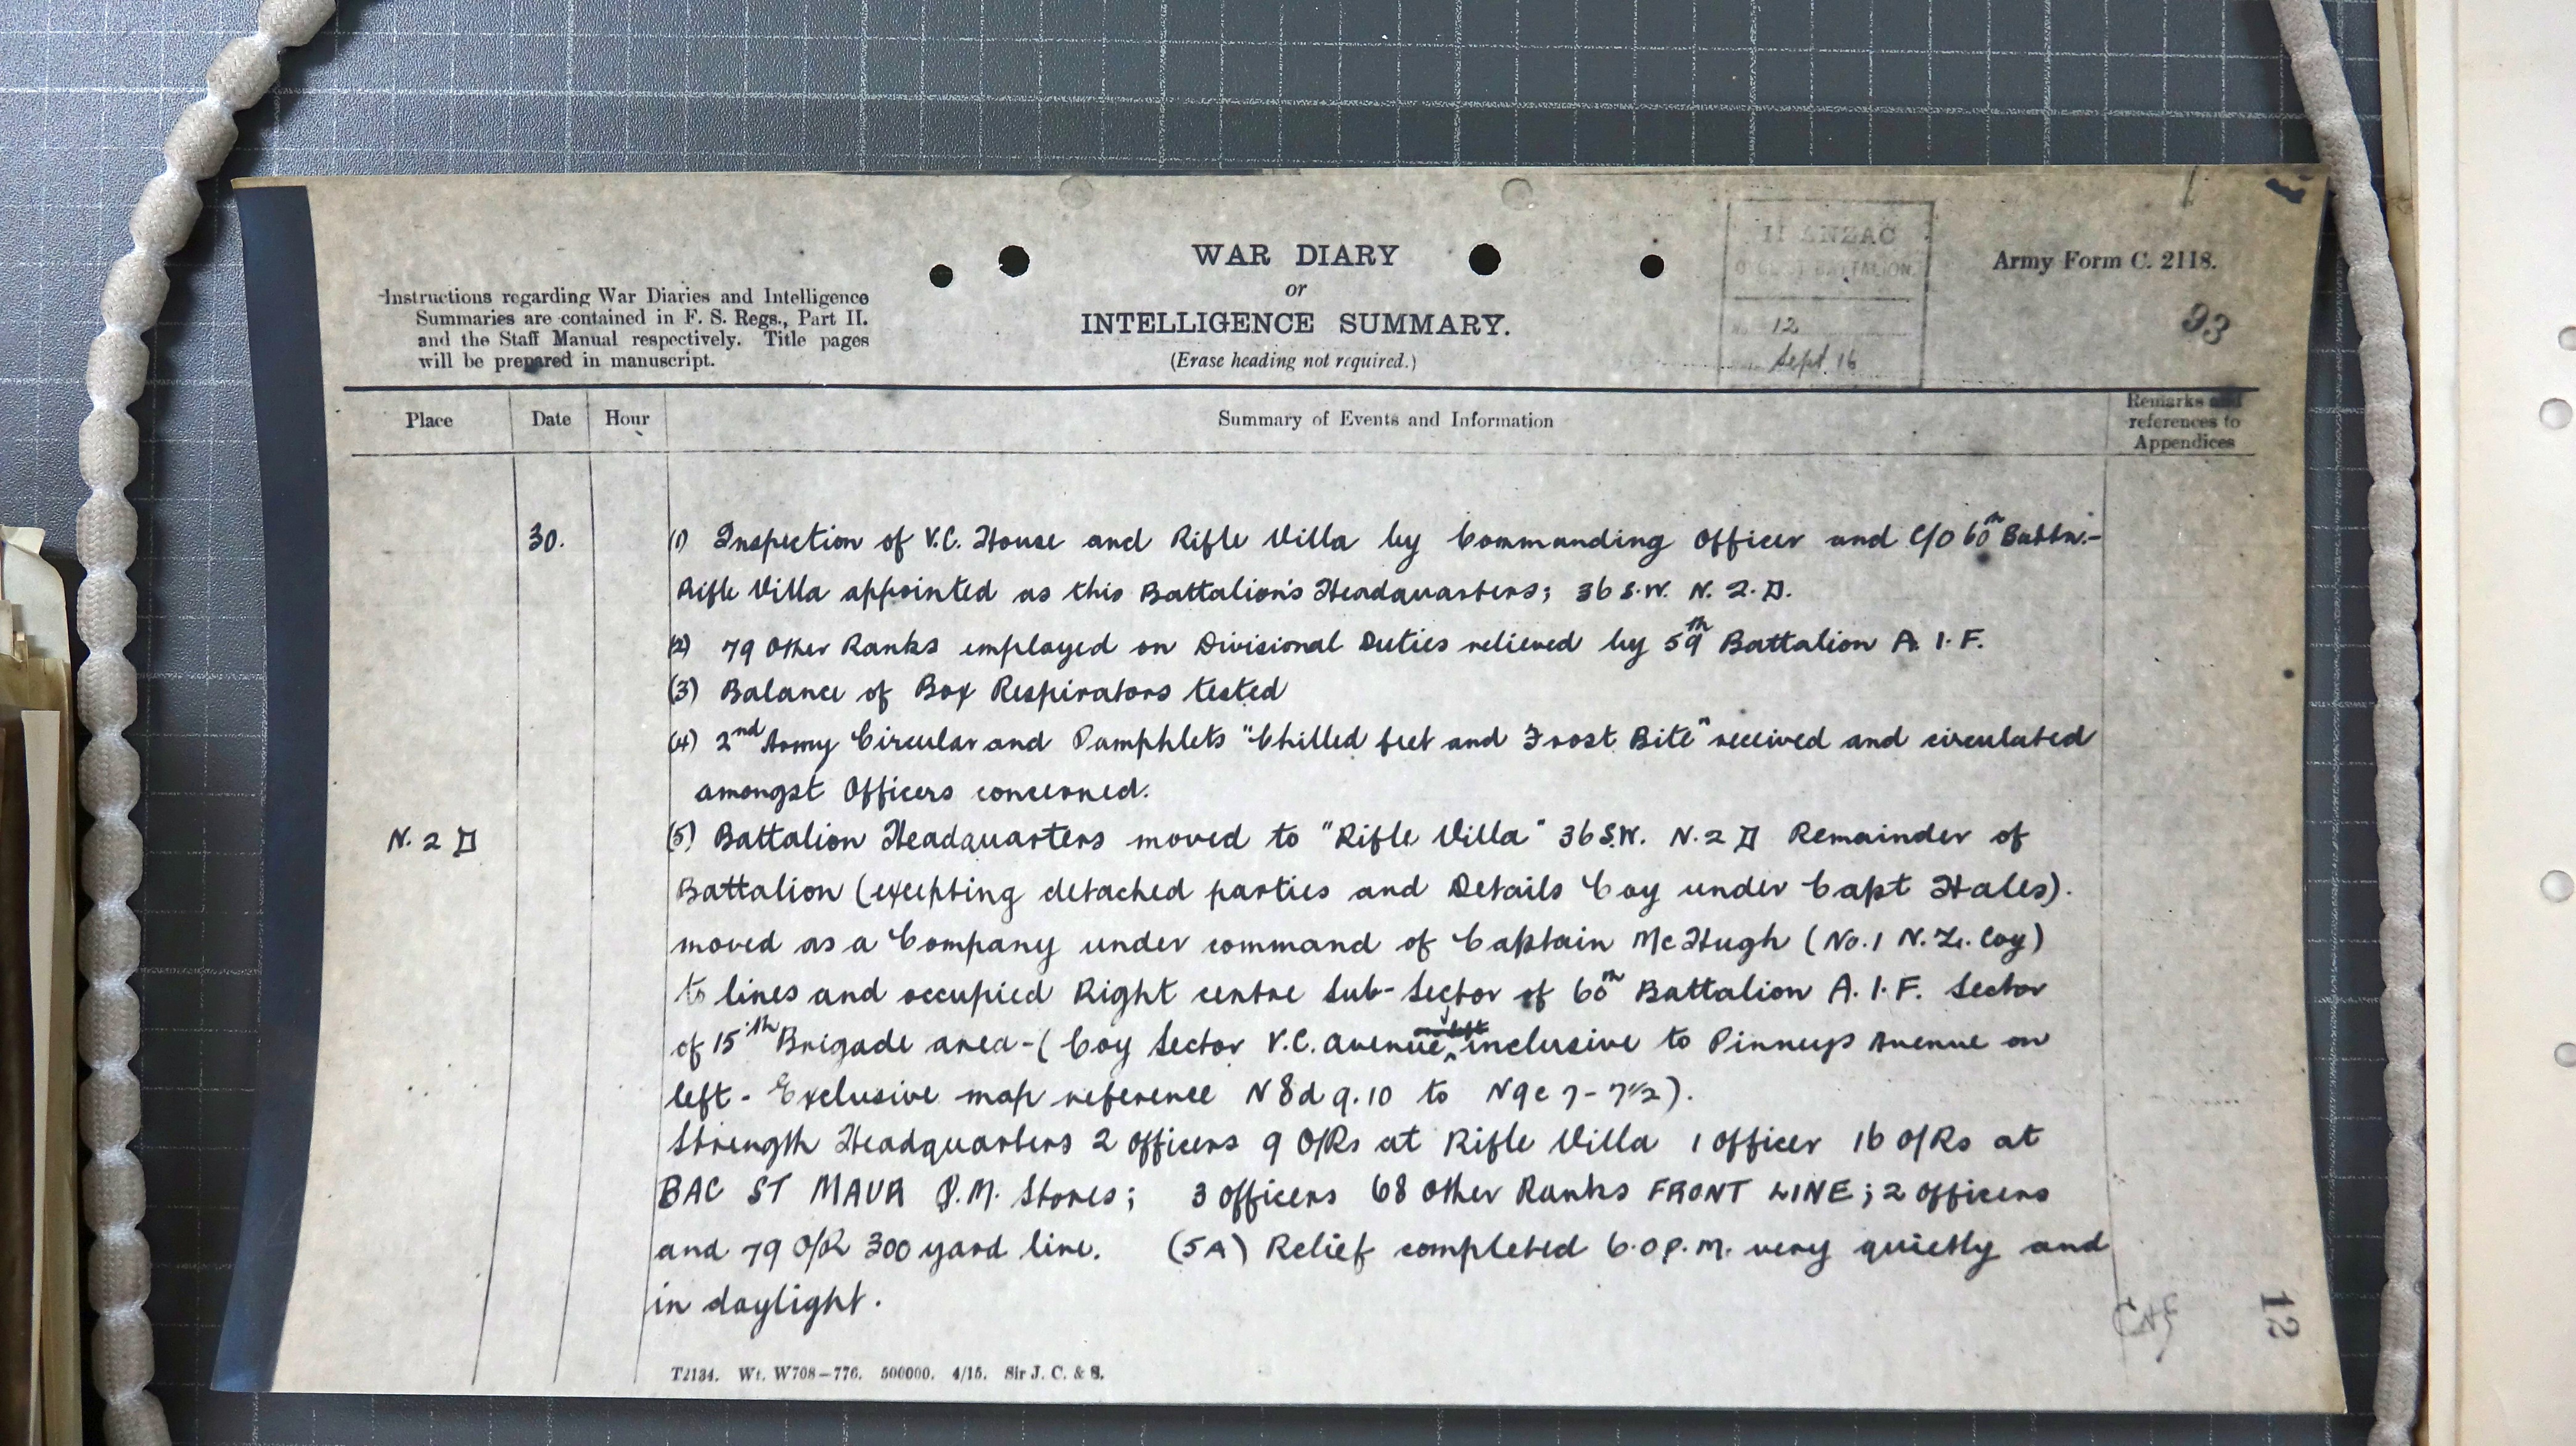 WAR DIARY
or
INTELLIGENCE SUMMARY.
(Erase heading not required.)
Instructions regarding War Diaries and Intelligence
Summaries are contained in F. S. Regs., Part II.
and the Staff Manual respectively. Title pages
will be prepared in manuscript.
II ANZAC
BATTALION.
12
Sept. 16
Army Form C. 2118.
93
Place
Date
Hour
Summary of Events and Information
Remarks and
references to
Appendices
30.
(1) Inspection of V.C. House and Rifle Villa by Commanding Officer and C/O 60th Battn.-
Rifle Villa appointed as this Battalion's Headquarters; 36 S.W. N. 2. D.
(2) 79 Other Ranks employed on Divisional Duties relieved by 59th Battalion A. I. F.
(3) Balance of Box Respirators tested
(4) 2nd Army Circular and Pamphlets "Chilled feet and Frost Bite" received and circulated
amongst Officers concerned.
N. 2 D
(5) Battalion Headquarters moved to "Rifle Villa" 36 S.W. N. 2 D Remainder of
Battalion (excepting detached parties and Details Coy under Capt Hales).
moved as a Company under command of Captain McHugh (No. 1 N.Z. Coy)
to lines and occupied Right centre Sub-Sector of 60th Battalion A. I. F. Sector
of 15th Brigade area - (Coy Sector V.C. Avenue, inclusive to Pinneys Avenue on
left - Exclusive map reference N8d 9.10 to N9c 7-7½).
Strength Headquarters 2 Officers 9 O/Rs at Rifle Villa 1 Officer 16 O/Rs at
BAC ST MAUR Q.M. Stores; 3 Officers 68 Other Ranks FRONT LINE; 2 Officers
and 79 O/R 300 yard line. (5A) Relief completed 6.0 P.M. very quietly and
in daylight.
12
T2134. Wt. W708-776. 500000. 4/15. Sir J. C. & S.